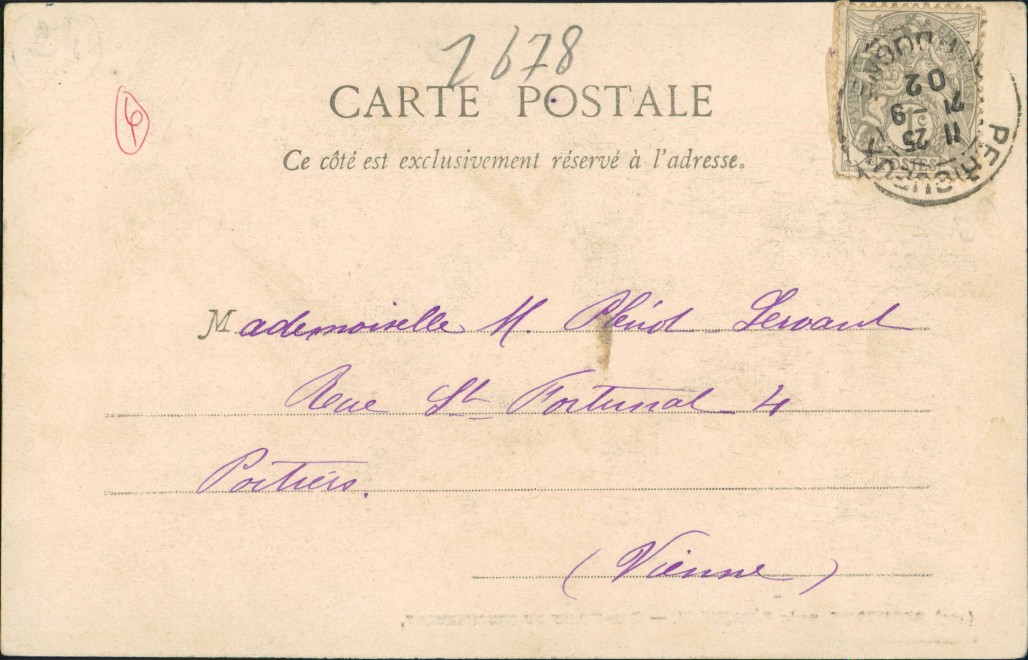 2678
CARTE POSTALE
Ce côté est exclusivement réservé à l'adresse.
PERIGUEUX
11
25 - 9
02
POSTES
Mademoiselle M. Plénot Servant
Rue St Fortunat 4
Poitiers.
(Vienne)